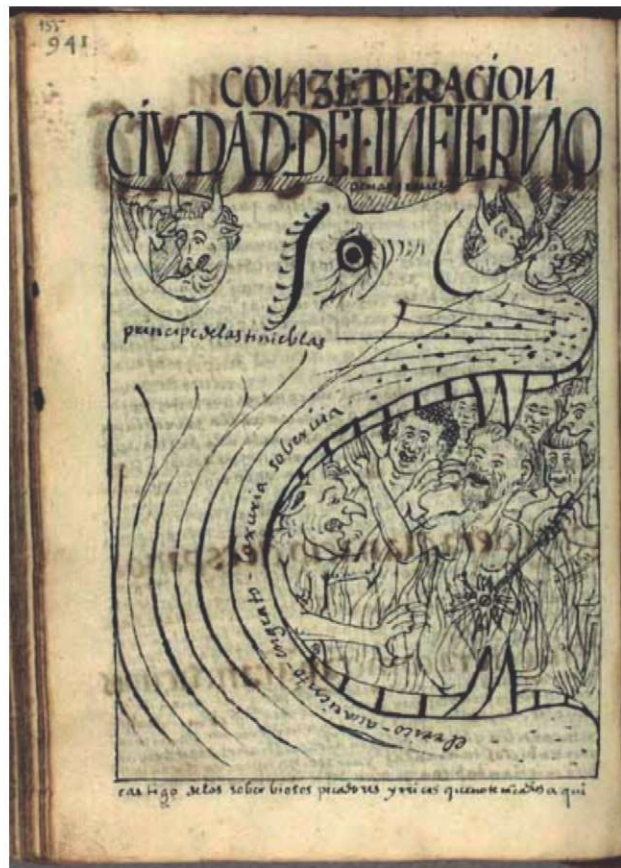 155
941
CONZEDERACION
CIVDAD·DEL·INFIERNO
penas graues
principe de las tinieblas
el rico - auariento - yngrato - loxuria - soberuia
castigo de los soberbiosos pecadores y ricos que no temen a dios aqui